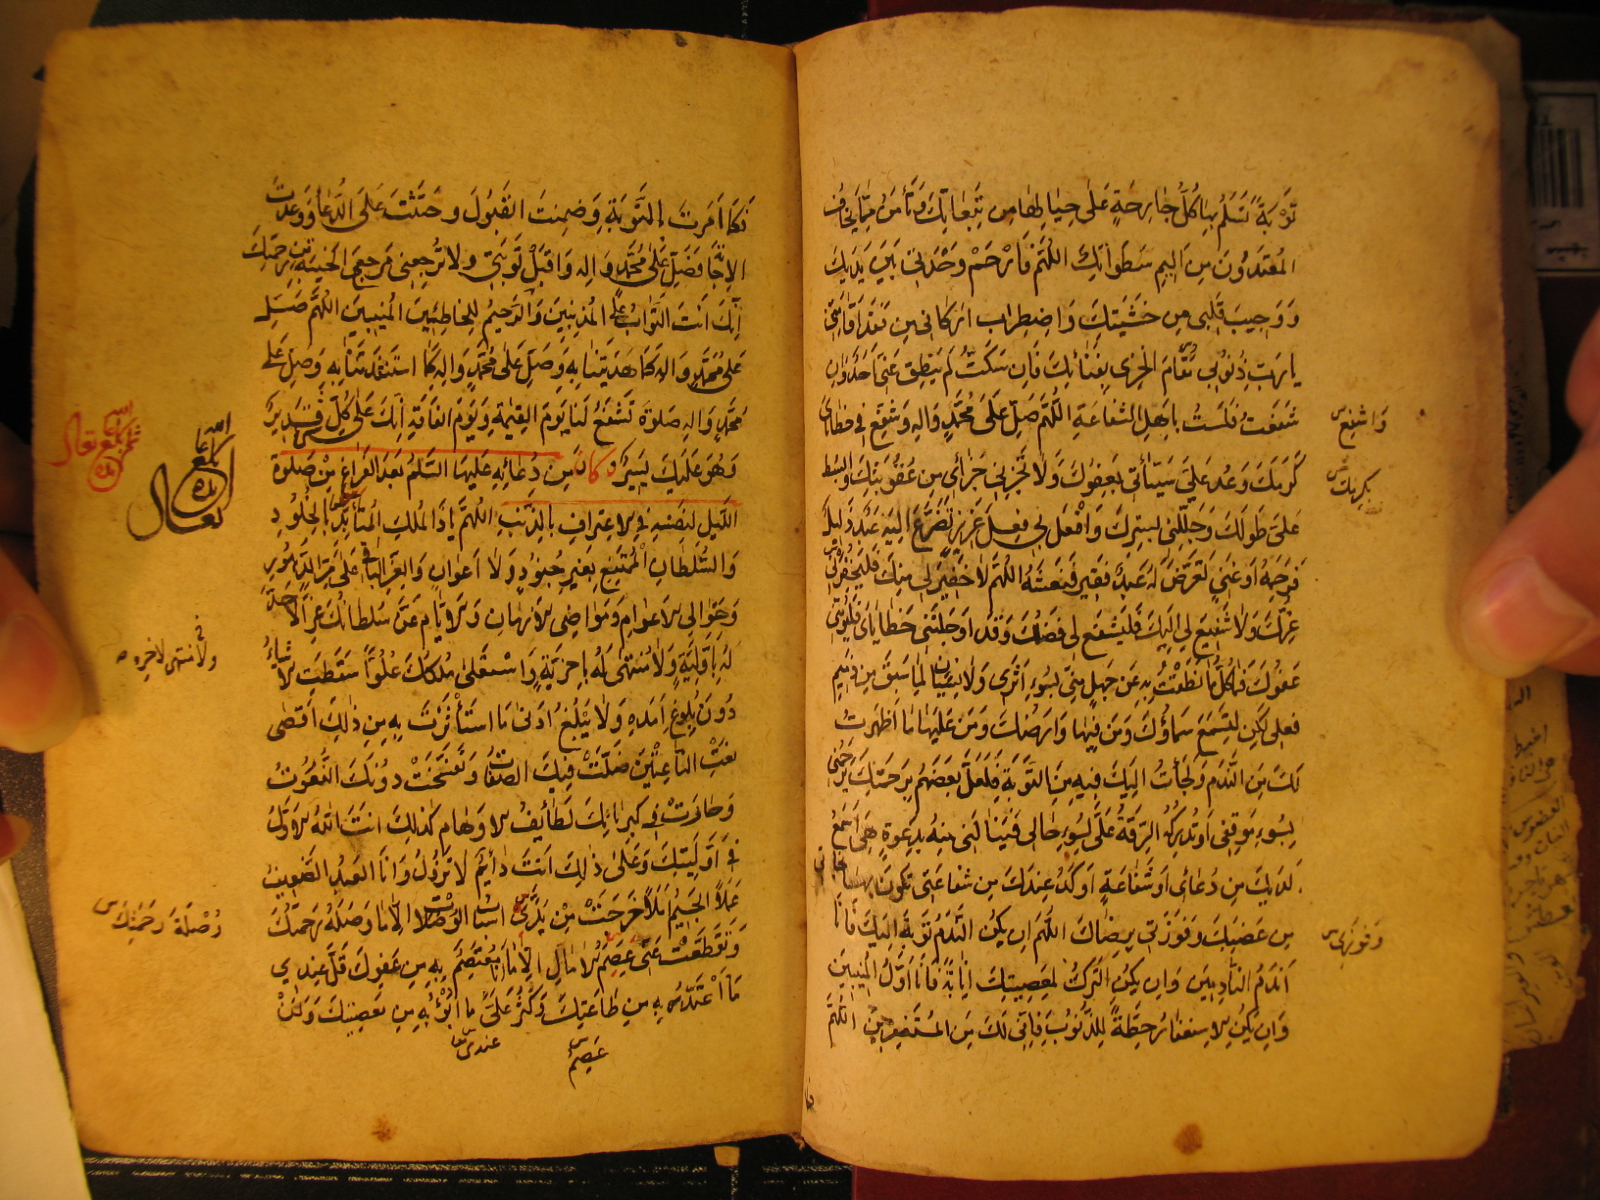 تَوْبَةً تَسْلَمُ بِهَا كُلُّ جَارِحَةٍ عَلَى حِيَالِهَا مِن تَبِعَاتِكَ وَتَأْمَنُ مِمَّا يَخَافُ
الْمُعْتَدُونَ مِن أَلِيمِ سَطَوَاتِكَ اللَّهُمَّ فَارْحَمْ وَحْدَتِي بَيْنَ يَدَيْكَ
وَوَجِيبَ قَلْبِي مِن خَشْيَتِكَ وَاضْطِرَابَ أَرْكَانِي مِن هَيْبَتِكَ فَقَدْ أَقَامَتْنِي
يَا رَبِّ ذُنُوبِي مَقَامَ الْخِزْيِ بِفِنَائِكَ فَإِن سَكَتُّ لَمْ يَنْطِقْ عَنِّي أَحَدٌ وَإِن
شَفَعْتُ فَلَسْتُ بِأَهْلِ الشَّفَاعَةِ اللَّهُمَّ صَلِّ عَلَى مُحَمَّدٍ وَآلِهِ وَشَفِّعْ فِي خَطَايَايَ
كَرَمَكَ وَعُدْ عَلَى سَيِّئَاتِي بِعَفْوِكَ وَلَا تَجْزِنِي جَزَائِي مِن عُقُوبَتِكَ وَابْسُطْ
عَلَيَّ طَوْلَكَ وَجَلِّلْنِي بِسِتْرِكَ وَافْعَلْ بِي فِعْلَ عَزِيزٍ تَضَرَّعَ إِلَيْهِ عَبْدٌ ذَلِيلٌ
فَرَحِمَهُ أَوْ غَنِيٍّ تَعَرَّضَ لَهُ عَبْدٌ فَقِيرٌ فَنَعَشَهُ اللَّهُمَّ لَا خَفِيرَ لِي مِنْكَ فَلْيَخْفُرْنِي
عِزُّكَ وَلَا شَفِيعَ لِي إِلَيْكَ فَلْيَشْفَعْ لِي فَضْلُكَ وَقَدْ أَوْجَلَتْنِي خَطَايَايَ فَلْيُؤْمِنِّي
عَفْوُكَ فَمَا كُلُّ مَا نَطَقْتُ بِهِ عَن جَهْلٍ مِنِّي بِسُوءِ أَثَرِي وَلَا نِسْيَانٍ لِمَا سَبَقَ مِن ذَمِيمِ
فِعْلِي لَكِن لِتَسْمَعَ سَمَاؤُكَ وَمَن فِيهَا وَأَرْضُكَ وَمَن عَلَيْهَا مَا أَظْهَرْتُ
لَكَ مِنَ النَّدَمِ وَلَجَأْتُ إِلَيْكَ فِيهِ مِنَ التَّوْبَةِ فَلَعَلَّ بَعْضَهُمْ بِرَحْمَتِكَ يَرْحَمُنِي
لِسُوءِ مَوْقِفِي أَوْ تُدْرِكُهُ الرِّقَّةُ عَلَيَّ لِسُوءِ حَالِي فَيَنَالَنِي مِنْهُ بِدَعْوَةٍ هِيَ أَسْمَعُ
لَدَيْكَ مِن دُعَائِي أَوْ شَفَاعَةٍ أَوْكَدُ عِنْدَكَ مِن شَفَاعَتِي تَكُونُ بِهَا نَجَاتِي
مِن غَضَبِكَ وَفَوْزَتِي بِرِضَاكَ اللَّهُمَّ إِن يَكُنِ النَّدَمُ تَوْبَةً إِلَيْكَ فَأَنَا
أَنْدَمُ النَّادِمِينَ وَإِن يَكُنِ التَّرْكُ لِمَعْصِيَتِكَ إِنَابَةً فَأَنَا أَوَّلُ الْمُنِيبِينَ
وَإِن يَكُنِ الِاسْتِغْفَارُ حِطَّةً لِلذُّنُوبِ فَإِنِّي لَكَ مِنَ الْمُسْتَغْفِرِينَ اللَّهُمَّ
وَاشْفَعْ
بِكَرَمِكَ
وَفَوْزِي
فَكَمَا أَمَرْتَ بِالتَّوْبَةِ وَضَمِنْتَ الْقَبُولَ وَحَثَثْتَ عَلَى الدُّعَاءِ وَوَعَدْتَ
الْإِجَابَةَ فَصَلِّ عَلَى مُحَمَّدٍ وَآلِهِ وَاقْبَلْ تَوْبَتِي وَلَا تُرْجِعْنِي مَرْجِعَ الْخَيْبَةِ مِن رَحْمَتِكَ
إِنَّكَ أَنْتَ التَّوَّابُ عَلَى الْمُذْنِبِينَ وَالرَّحِيمُ لِلْخَاطِئِينَ الْمُنِيبِينَ اللَّهُمَّ صَلِّ
عَلَى مُحَمَّدٍ وَآلِهِ كَمَا هَدَيْتَنَا بِهِ وَصَلِّ عَلَى مُحَمَّدٍ وَآلِهِ كَمَا اسْتَنْقَذْتَنَا بِهِ وَصَلِّ عَلَى
مُحَمَّدٍ وَآلِهِ صَلَوةً تَشْفَعُ لَنَا يَوْمَ الْقِيمَةِ وَيَوْمَ الْفَاقَةِ إِنَّكَ عَلَى كُلِّ شَيْءٍ قَدِيرٌ
وَهُوَ عَلَيْكَ يَسِيرٌ وَكَانَ مِن دُعَائِهِ عَلَيْهِ السَّلَمُ بَعْدَ الْفَرَاغِ مِنْ صَلَوةِ
اللَّيْلِ لِنَفْسِهِ فِي الِاعْتِرَافِ بِالذَّنْبِ اللَّهُمَّ يَا ذَا الْمُلْكِ الْمُتَأَبِّدِ بِالْخُلُودِ
وَالسُّلْطَانِ الْمُمْتَنِعِ بِغَيْرِ جُنُودٍ وَلَا أَعْوَانٍ وَالْعِزِّ الْبَاقِي عَلَى مَرِّ الدُّهُورِ
وَخَوَالِي الْأَعْوَامِ وَمَوَاضِي الْأَزْمَانِ وَالْأَيَّامِ عَزَّ سُلْطَانُكَ عِزًّا لَا حَدَّ
لَهُ بِأَوَّلِيَّةٍ وَلَا مُنْتَهَى لَهُ بِآخِرِيَّةٍ وَاسْتَعْلَى مُلْكُكَ عُلُوًّا سَقَطَتِ الْأَشْيَاءُ
دُونَ بُلُوغِ أَمَدِهِ وَلَا يَبْلُغُ أَدْنَى مَا اسْتَأْثَرْتَ بِهِ مِن ذَلِكَ أَقْصَى
نَعْتِ النَّاعِتِينَ ضَلَّتْ فِيكَ الصِّفَاتُ وَتَفَسَّخَتْ دُونَكَ النُّعُوتُ
وَحَارَتْ فِي كِبْرِيَائِكَ لَطَائِفُ الْأَوْهَامِ كَذَلِكَ أَنْتَ اللَّهُ الْأَوَّلُ
فِي أَوَّلِيَّتِكَ وَعَلَى ذَلِكَ أَنْتَ دَائِمٌ لَا تَزُولُ وَأَنَا الْعَبْدُ الضَّعِيفُ
عَمَلًا الْجَسِيمُ أَمَلًا خَرَجَتْ مِنْ يَدَيَّ أَسْبَابُ الْوُصُلَاتِ إِلَّا مَا وَصَلَهُ رَحْمَتُكَ
وَتَقَطَّعَتْ عَنِّي عِصَمُ الْآمَالِ إِلَّا مَا أَنَا مُعْتَصِمٌ بِهِ مِن عَفْوِكَ قَلَّ عِنْدِي
مَا أَعْتَدُّ بِهِ مِن طَاعَتِكَ وَكَثُرَ عَلَيَّ مَا أَبُوءُ بِهِ مِن مَعْصِيَتِكَ وَلَنْ
عِصَمُ
عندي
وُصْلَةُ رَحْمَتِكَ
وَلَا مُنْتَهَى لِآخِرِهِ
بلغ
تعالى